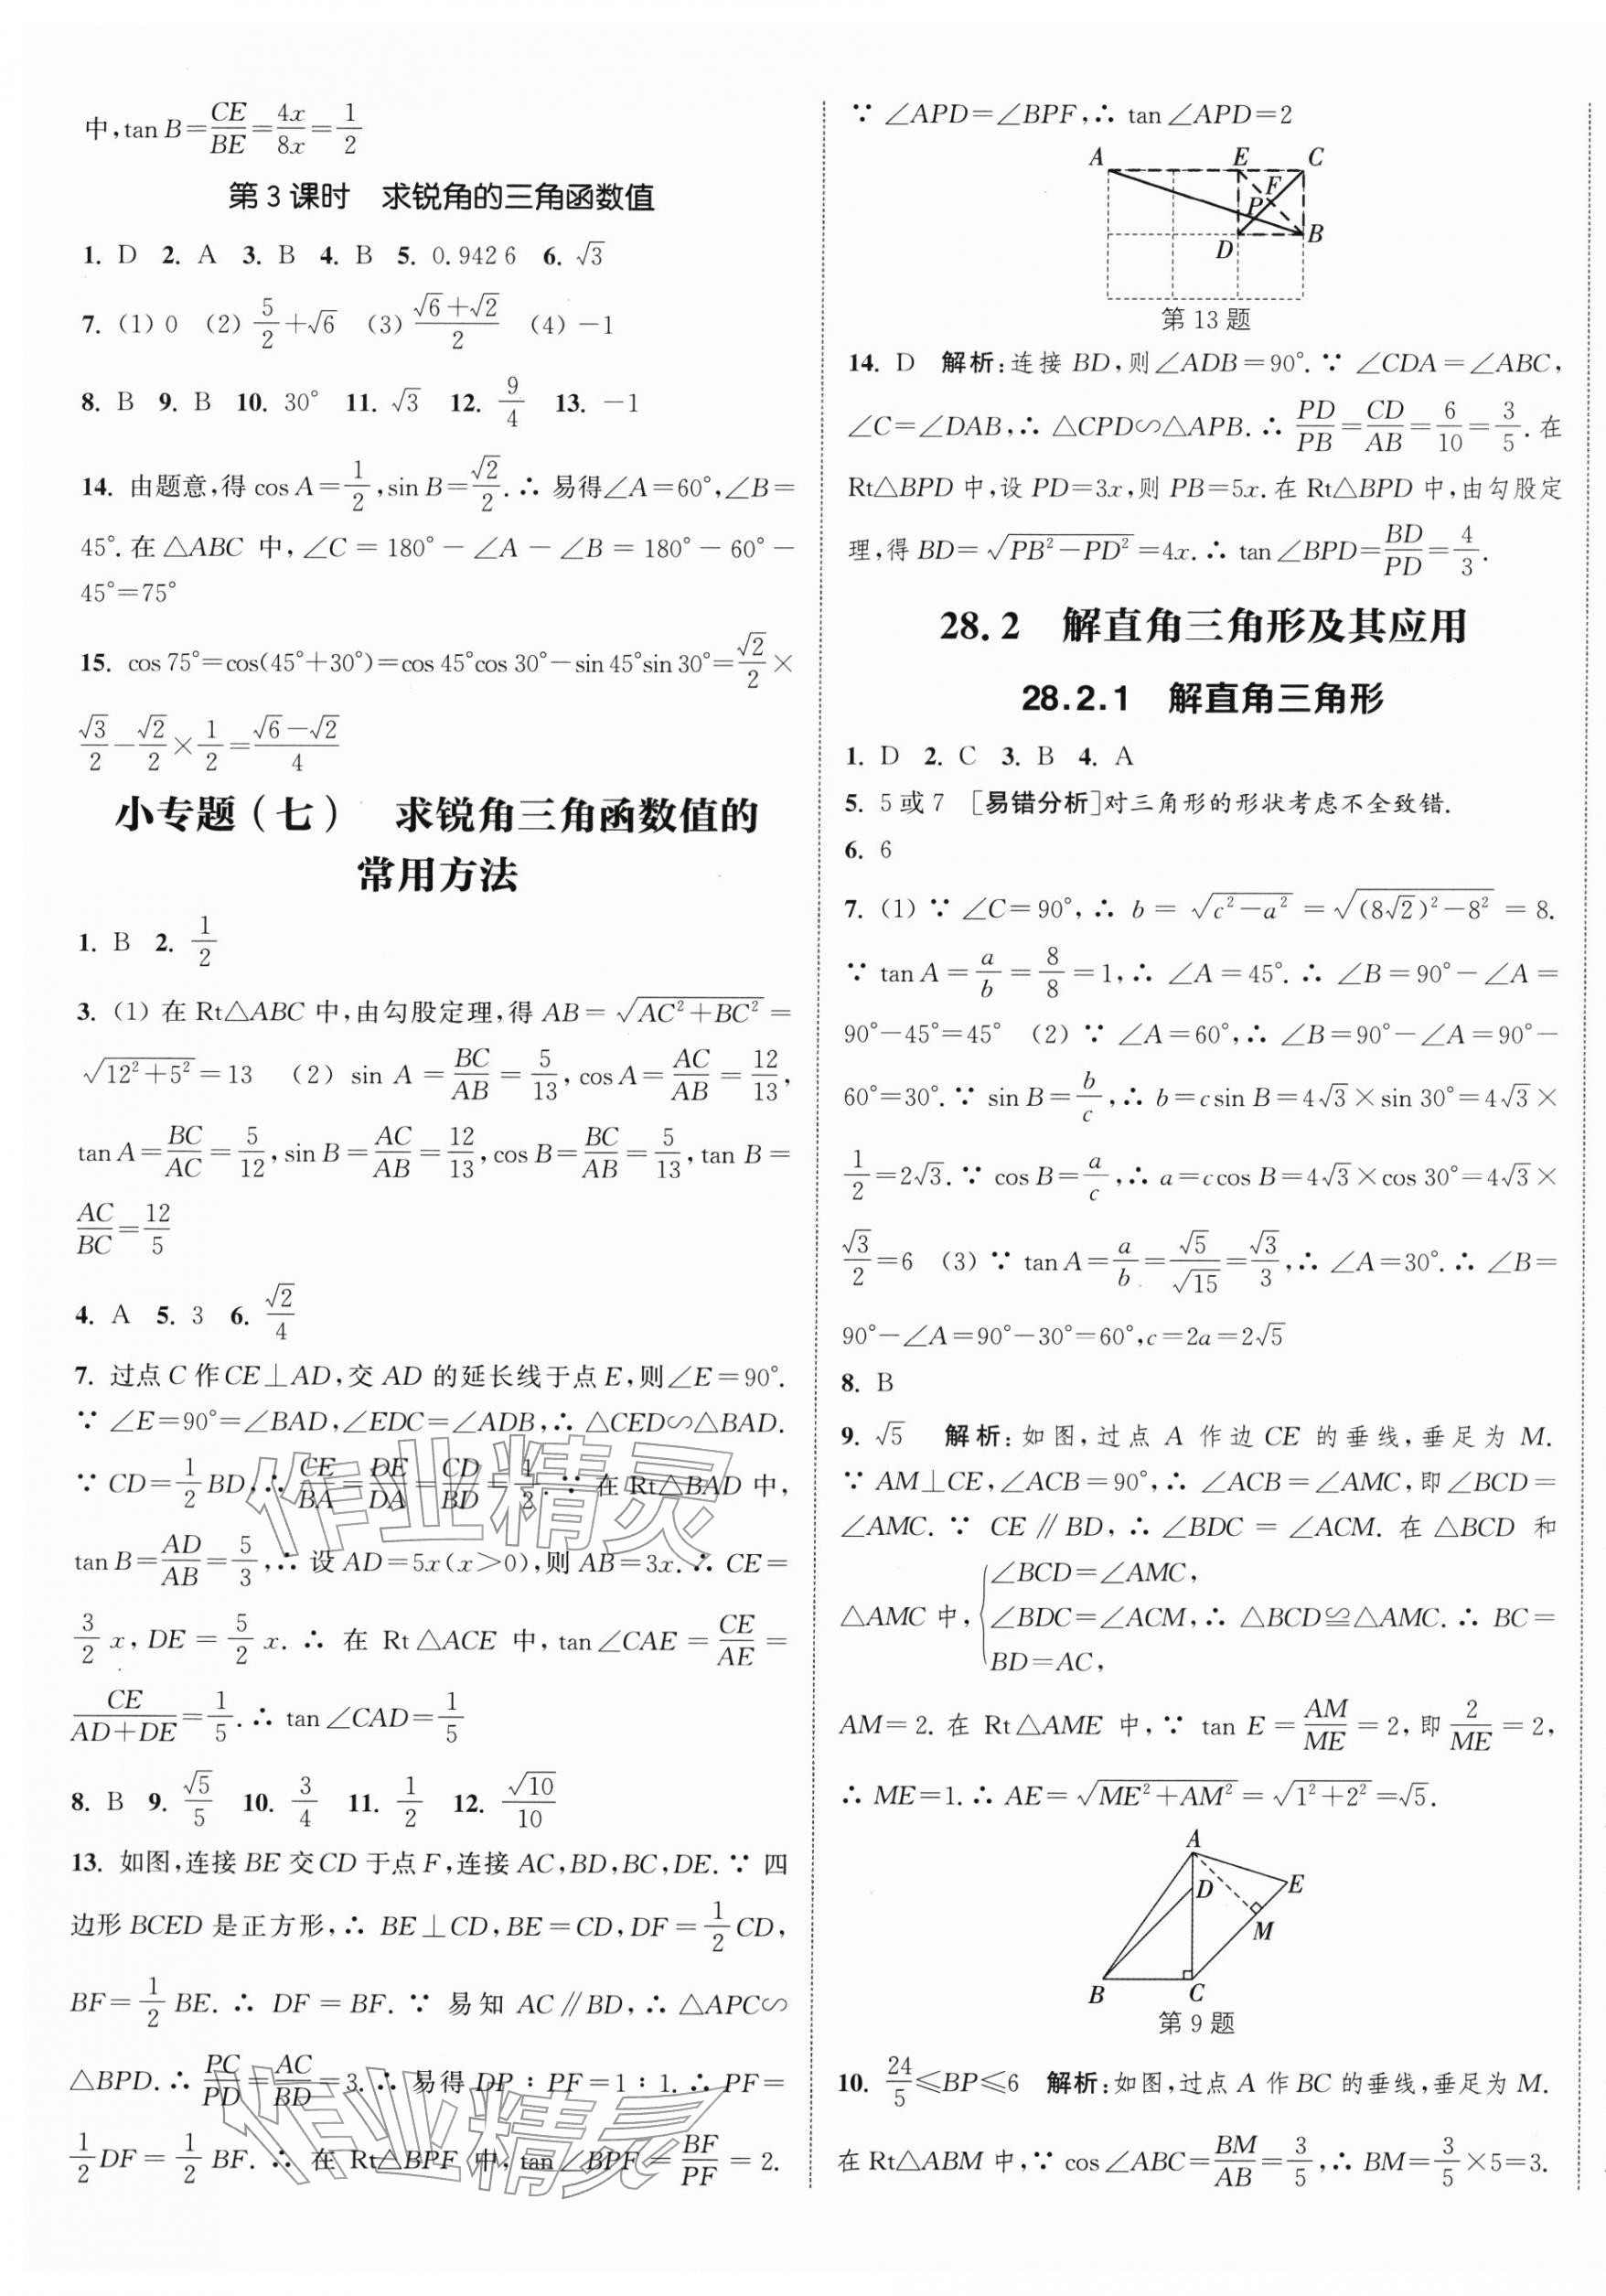 中,tan B=CE/BE=4x/8x=1/2
第3课时 求锐角的三角函数值
1. D 2. A 3. B 4. B 5. 0.942 6 6. √3
7. (1) 0 (2) 5/2+√6 (3) (√6+√2)/2 (4) -1
8. B 9. B 10. 30° 11. √3 12. 9/4 13. -1
14. 由题意,得 cos A=1/2,sin B=√2/2.∴ 易得∠A=60°,∠B=
45°.在 △ABC 中,∠C=180°-∠A-∠B=180°-60°-
45°=75°
15. cos 75°=cos(45°+30°)=cos 45°cos 30°-sin 45°sin 30°=√2/2×
√3/2-√2/2×1/2=(√6-√2)/4
小专题(七) 求锐角三角函数值的
常用方法
1. B 2. 1/2
3. (1) 在 Rt△ABC 中,由勾股定理,得 AB=√(AC²+BC²)=
√(12²+5²)=13 (2) sin A=BC/AB=5/13,cos A=AC/AB=12/13,
tan A=BC/AC=5/12,sin B=AC/AB=12/13,cos B=BC/AB=5/13,tan B=
AC/BC=12/5
4. A 5. 3 6. √2/4
7. 过点 C 作 CE⊥AD,交 AD 的延长线于点 E,则∠E=90°.
∵ ∠E=90°=∠BAD,∠EDC=∠ADB,∴ △CED∽△BAD.
∵ CD=1/2 BD,∴ CE/BA=DE/DA=CD/BD=1/2.∵ 在 Rt△BAD 中,
tan B=AD/AB=5/3,∴ 设 AD=5x(x>0),则 AB=3x.∴ CE=
3/2 x,DE=5/2 x.∴ 在 Rt△ACE 中,tan∠CAE=CE/AE=
CE/(AD+DE)=1/5.∴ tan∠CAD=1/5
8. B 9. √5/5 10. 3/4 11. 1/2 12. √10/10
13. 如图,连接 BE 交 CD 于点 F,连接 AC,BD,BC,DE.∵ 四
边形 BCED 是正方形,∴ BE⊥CD,BE=CD,DF=1/2 CD,
BF=1/2 BE.∴ DF=BF.∵ 易知 AC∥BD,∴ △APC∽
△BPD.∴ PC/PD=AC/BD=3.∴ 易得 DP∶PF=1∶1.∴ PF=
1/2 DF=1/2 BF.∴ 在 Rt△BPF 中,tan∠BPF=BF/PF=2.
∵ ∠APD=∠BPF,∴ tan∠APD=2
A E C
F
P
D B
第13题
14. D 解析:连接 BD,则∠ADB=90°.∵ ∠CDA=∠ABC,
∠C=∠DAB,∴ △CPD∽△APB.∴ PD/PB=CD/AB=6/10=3/5.在
Rt△BPD 中,设 PD=3x,则 PB=5x.在 Rt△BPD 中,由勾股定
理,得 BD=√(PB²-PD²)=4x.∴ tan∠BPD=BD/PD=4/3.
28.2 解直角三角形及其应用
28.2.1 解直角三角形
1. D 2. C 3. B 4. A
5. 5或7 [易错分析]对三角形的形状考虑不全致错.
6. 6
7. (1) ∵ ∠C=90°,∴ b=√(c²-a²)=√((8√2)²-8²)=8.
∵ tan A=a/b=8/8=1,∴ ∠A=45°.∴ ∠B=90°-∠A=
90°-45°=45° (2) ∵ ∠A=60°,∴ ∠B=90°-∠A=90°-
60°=30°.∵ sin B=b/c,∴ b=csin B=4√3×sin 30°=4√3×
1/2=2√3.∵ cos B=a/c,∴ a=ccos B=4√3×cos 30°=4√3×
√3/2=6 (3) ∵ tan A=a/b=√5/√15=√3/3,∴ ∠A=30°.∴ ∠B=
90°-∠A=90°-30°=60°,c=2a=2√5
8. B
9. √5 解析:如图,过点 A 作边 CE 的垂线,垂足为 M.
∵ AM⊥CE,∠ACB=90°,∴ ∠ACB=∠AMC,即∠BCD=
∠AMC.∵ CE∥BD,∴ ∠BDC=∠ACM.在 △BCD 和
∠BCD=∠AMC,
△AMC 中,{∠BDC=∠ACM,∴ △BCD≌△AMC.∴ BC=
BD=AC,
AM=2.在 Rt△AME 中,∵ tan E=AM/ME=2,即 2/ME=2,
∴ ME=1.∴ AE=√(ME²+AM²)=√(1²+2²)=√5.
A
D E
M
B C
第9题
10. 24/5≤BP≤6 解析:如图,过点 A 作 BC 的垂线,垂足为 M.
在 Rt△ABM 中,∵ cos∠ABC=BM/AB=3/5,∴ BM=3/5×5=3.
作业精灵
作业精灵